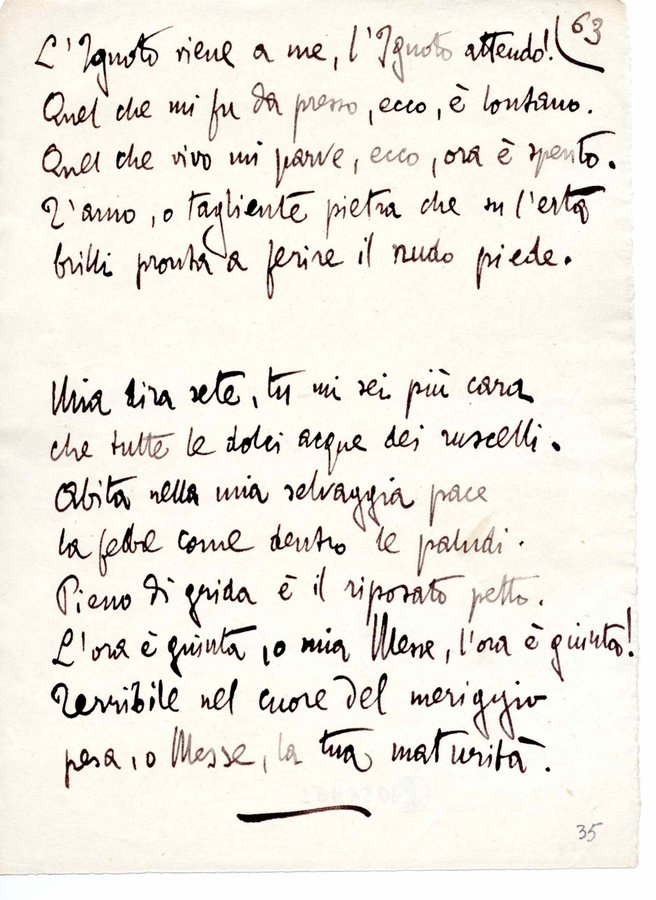 63
L'Ignoto viene a me, l'Ignoto attendo!
Quel che mi fu da presso, ecco, è lontano.
Quel che vivo mi parve, ecco, ora è spento.
T'amo, o tagliente pietra che su l'erta
brilli pronta a ferire il nudo piede.
Mia dira sete, tu mi sei più cara
che tutte le dolci acque dei ruscelli.
Abita nella mia selvaggia pace
la febbre come dentro le paludi.
Pieno di grida è il riposato petto.
L'ora è giunta, o mia Messe, l'ora è giunta!
Terribile nel cuore del meriggio
pesa, o Messe, la tua maturità.
35